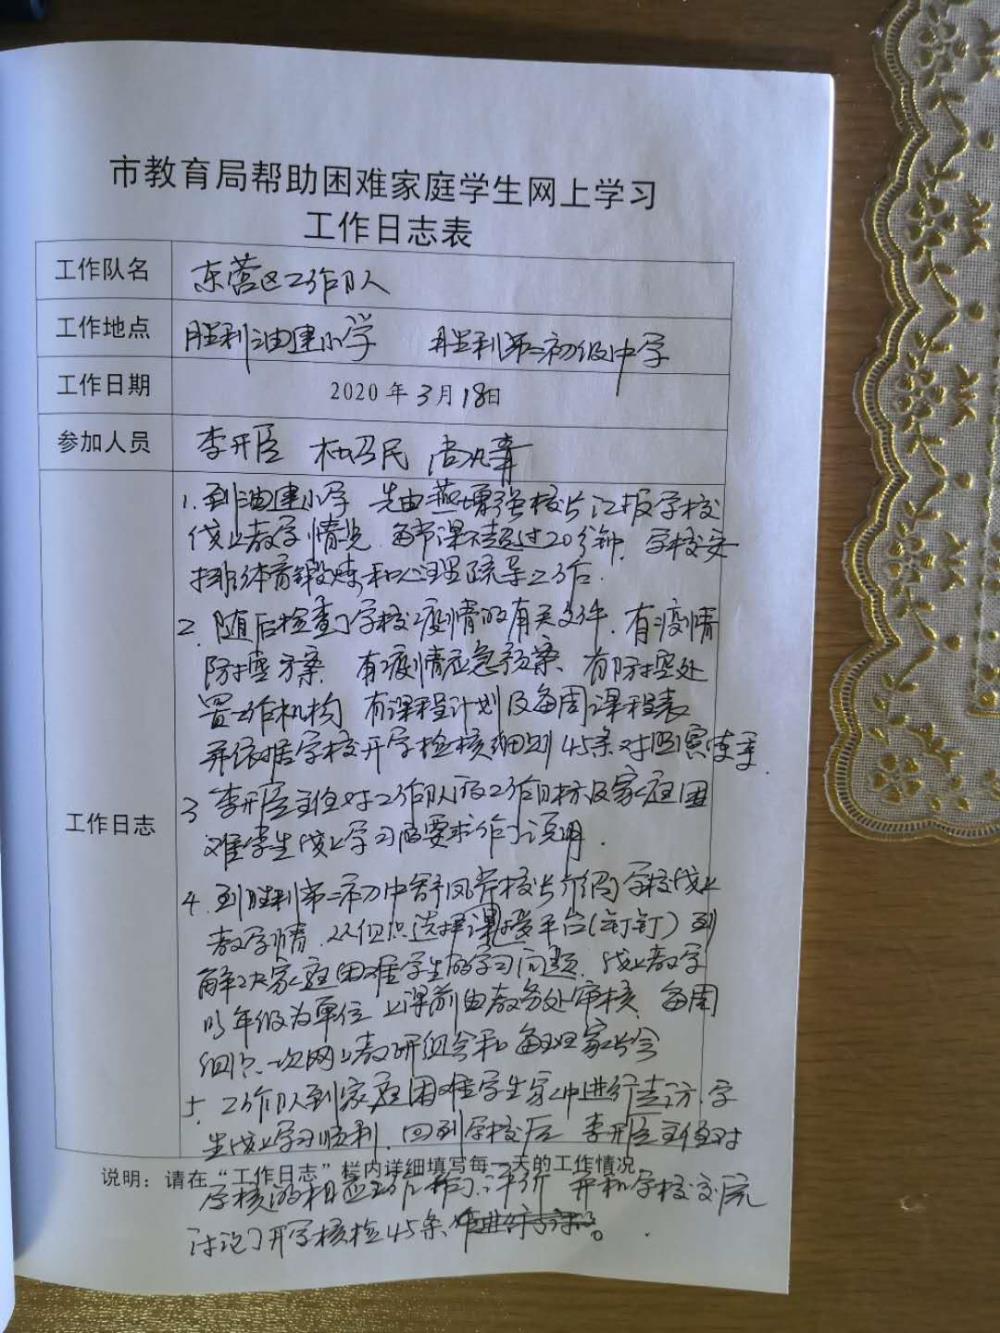 市教育局帮助困难家庭学生网上学习
工作日志表
工作队名 东营区工作队
工作地点 胜利油建小学 胜利第二初级中学
工作日期 2020年3月18日
参加人员 李开臣 杜召民
工作日志
1.到油建小学 先由燕增强校长汇报学校
线上教学情况 每节课不超过20分钟, 学校安
排体育锻炼和心理疏导工作.
2.随后检查了学校疫情的有关文件, 有疫情
防控方案 有疫情应急预案、有防控处
置工作机构 有课程计划及每周课程表
并依据学校开学检核细则45条对照
3 李开臣主任对工作队的工作目标及家庭困
难学生线上学习的要求作了说明.
4.到胜利第二初中舒凤 校长介绍学校线上
教学情 从 选择课授平台(钉钉)到
解决家庭困难学生的学习问题. 线上教学
以年级为单位 上课前由教务处审核 每周
组织一次网上教研组会和每班家长会
5.工作队到家庭困难学生家中进行走访, 学
生线上学习顺利. 回到学校后 李开臣主任对
说明：请在“工作日志”栏内详细填写每一天的工作情况
学校的相应工作 评价 并和学校交流
讨论了开学核检45条